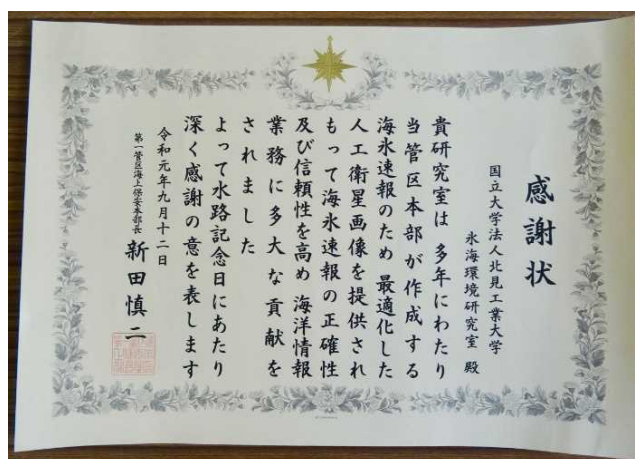 感謝状
国立大学法人北見工業大学
氷海環境研究室 殿
貴研究室は 多年にわたり
当管区本部が作成する
海氷速報のため 最適化した
人工衛星画像を提供され
もって海氷速報の正確性
及び信頼性を高め 海洋情報
業務に多大な貢献を
されました
よって水路記念日にあたり
深く感謝の意を表します
令和元年九月十二日
第一管区海上保安本部長 新田慎二